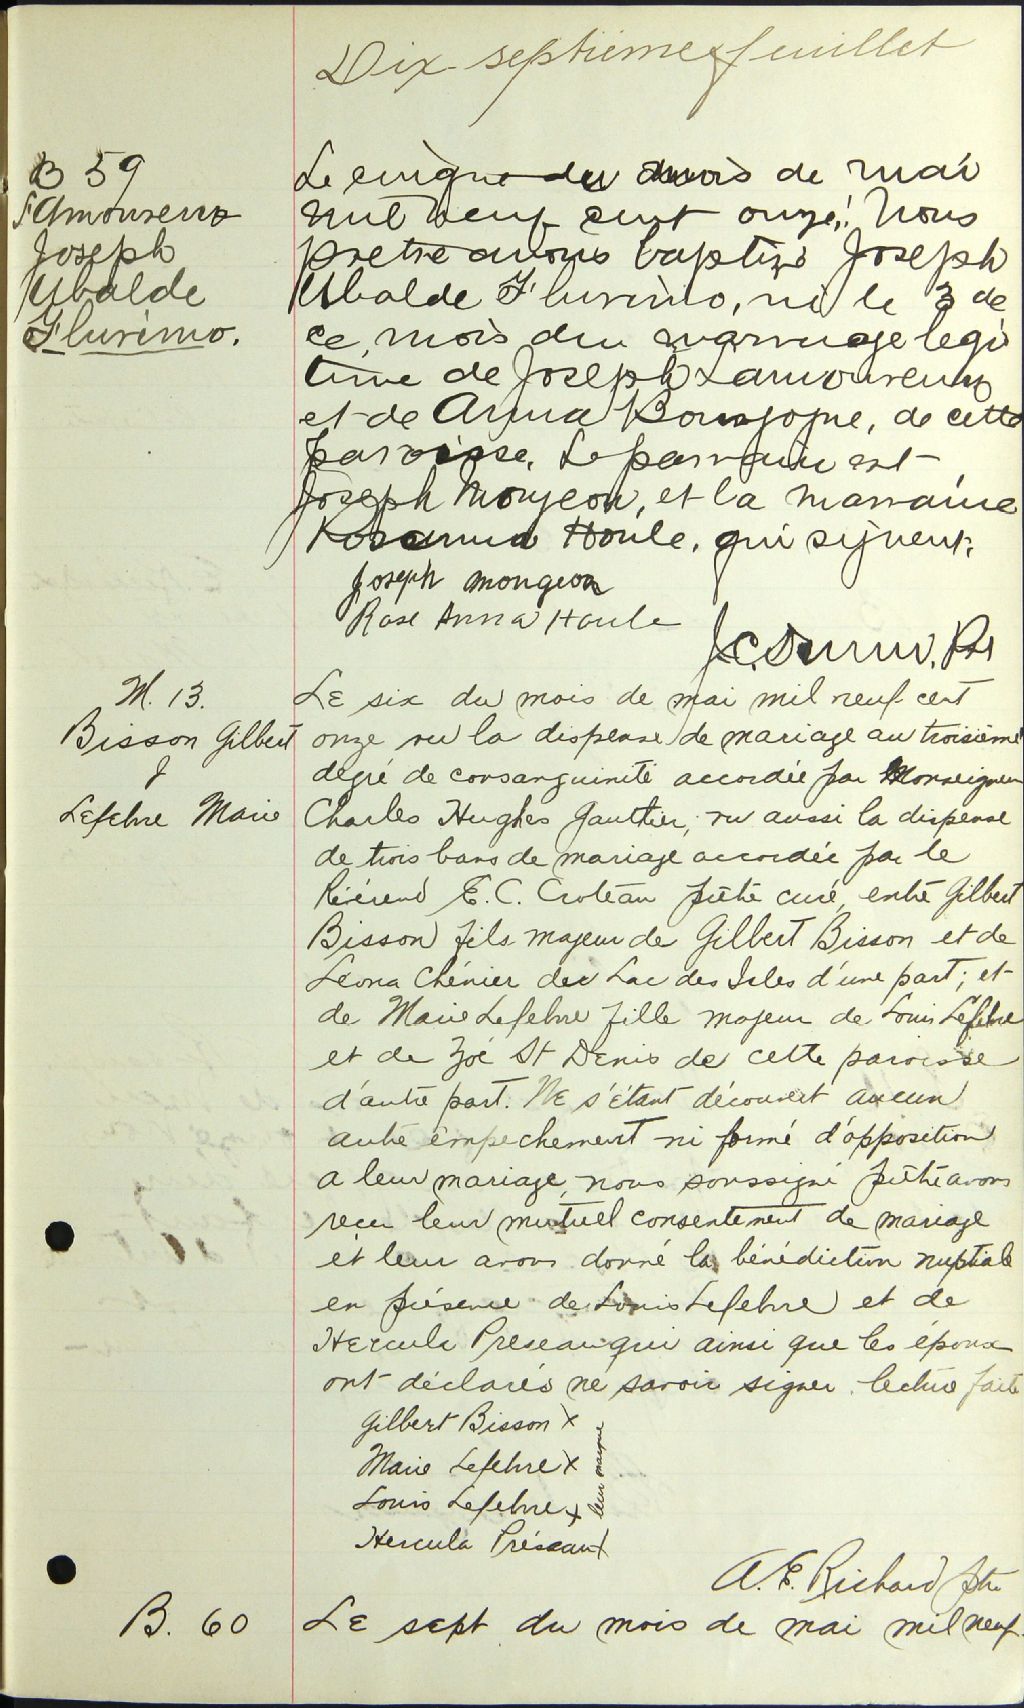 Dix septième feuillet
B 59
Lamoureux
Joseph
Ubalde
Flurimo.
Le cinq du mois de mai
mil neuf cent onze, Nous
pretre avons baptisé Joseph
Ubalde Flurimo, né le 3 de
ce mois du marriage légi
time de Joseph Lamoureux
et de Anna Bourgogne, de cette
paroisse. Le parrain est
Joseph Mongeon, et la marraine
Rosanna Houle, qui signent.
Joseph Mongeon
Rose Anna Houle
Ptr
M. 13.
Bisson Gilbert
&
Lefebre Marie
Le six du mois de mai mil neuf cent
onze vu la dispense de mariage au troisième
degré de consanguinité accordée par Monseigneur
Charles Hughes Gauthier, vu aussi la dispense
de trois bans de mariage accordée par le
Révérend E. C. Croteau prêtre curé, entre Gilbert
Bisson fils majeur de Gilbert Bisson et de
Leona Chénier du Lac des Isles d'une part; et
de Marie Lefebvre fille majeur de Louis Lefebvre
et de Zoé St Denis de cette paroisse
d'autre part. Ne s'étant découvert aucun
autre empechement ni formé d'opposition
a leur mariage, nous soussigné prêtre avons
reçu leur mutuel consentement de mariage
et leur avons donné la bénédiction nuptiale
en présence de Louis Lefebvre et de
Hercula Preseau qui ainsi que les époux
ont déclarés ne savoir signer. lecture faite
Gilbert Bisson X
Marie Lefebvre X
Louis Lefebvre X
Hercula Préseau X
leur marque
A. E. Richard ptre
B. 60
Le sept du mois de mai mil neuf